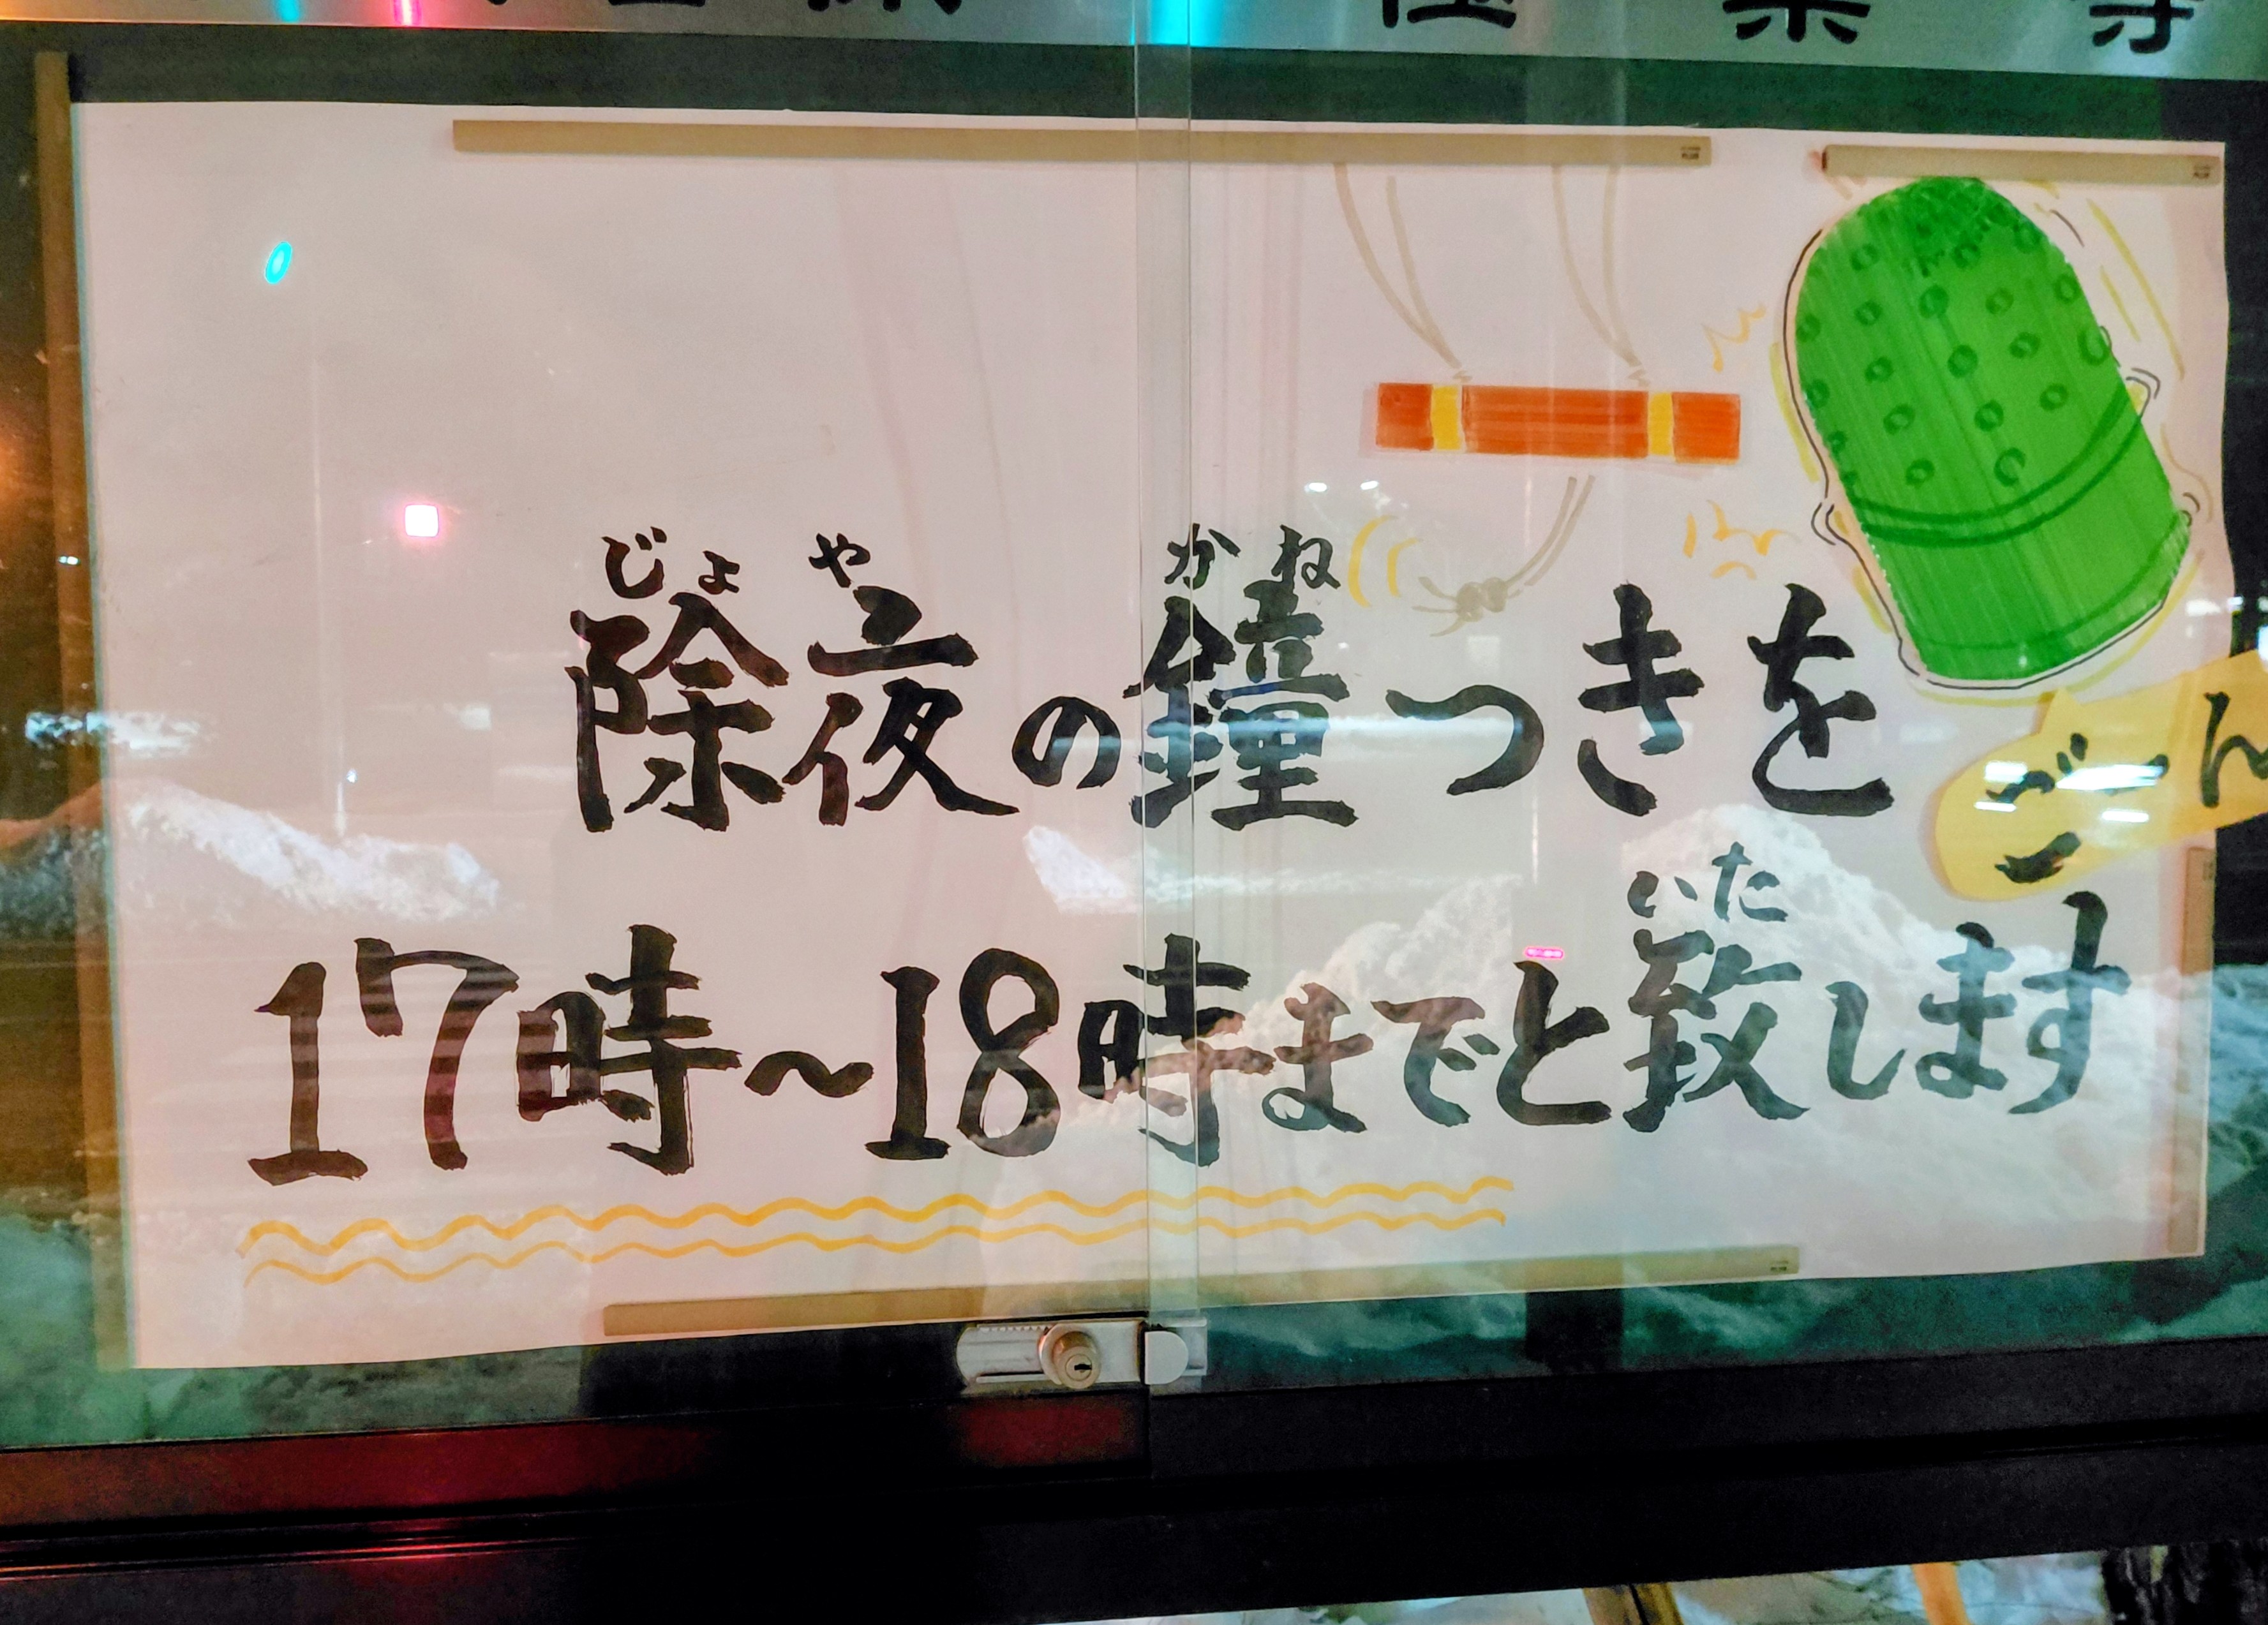 極楽寺
除夜の鐘つきを
じょ や かね
ごーん
17時～18時までと致します
いた